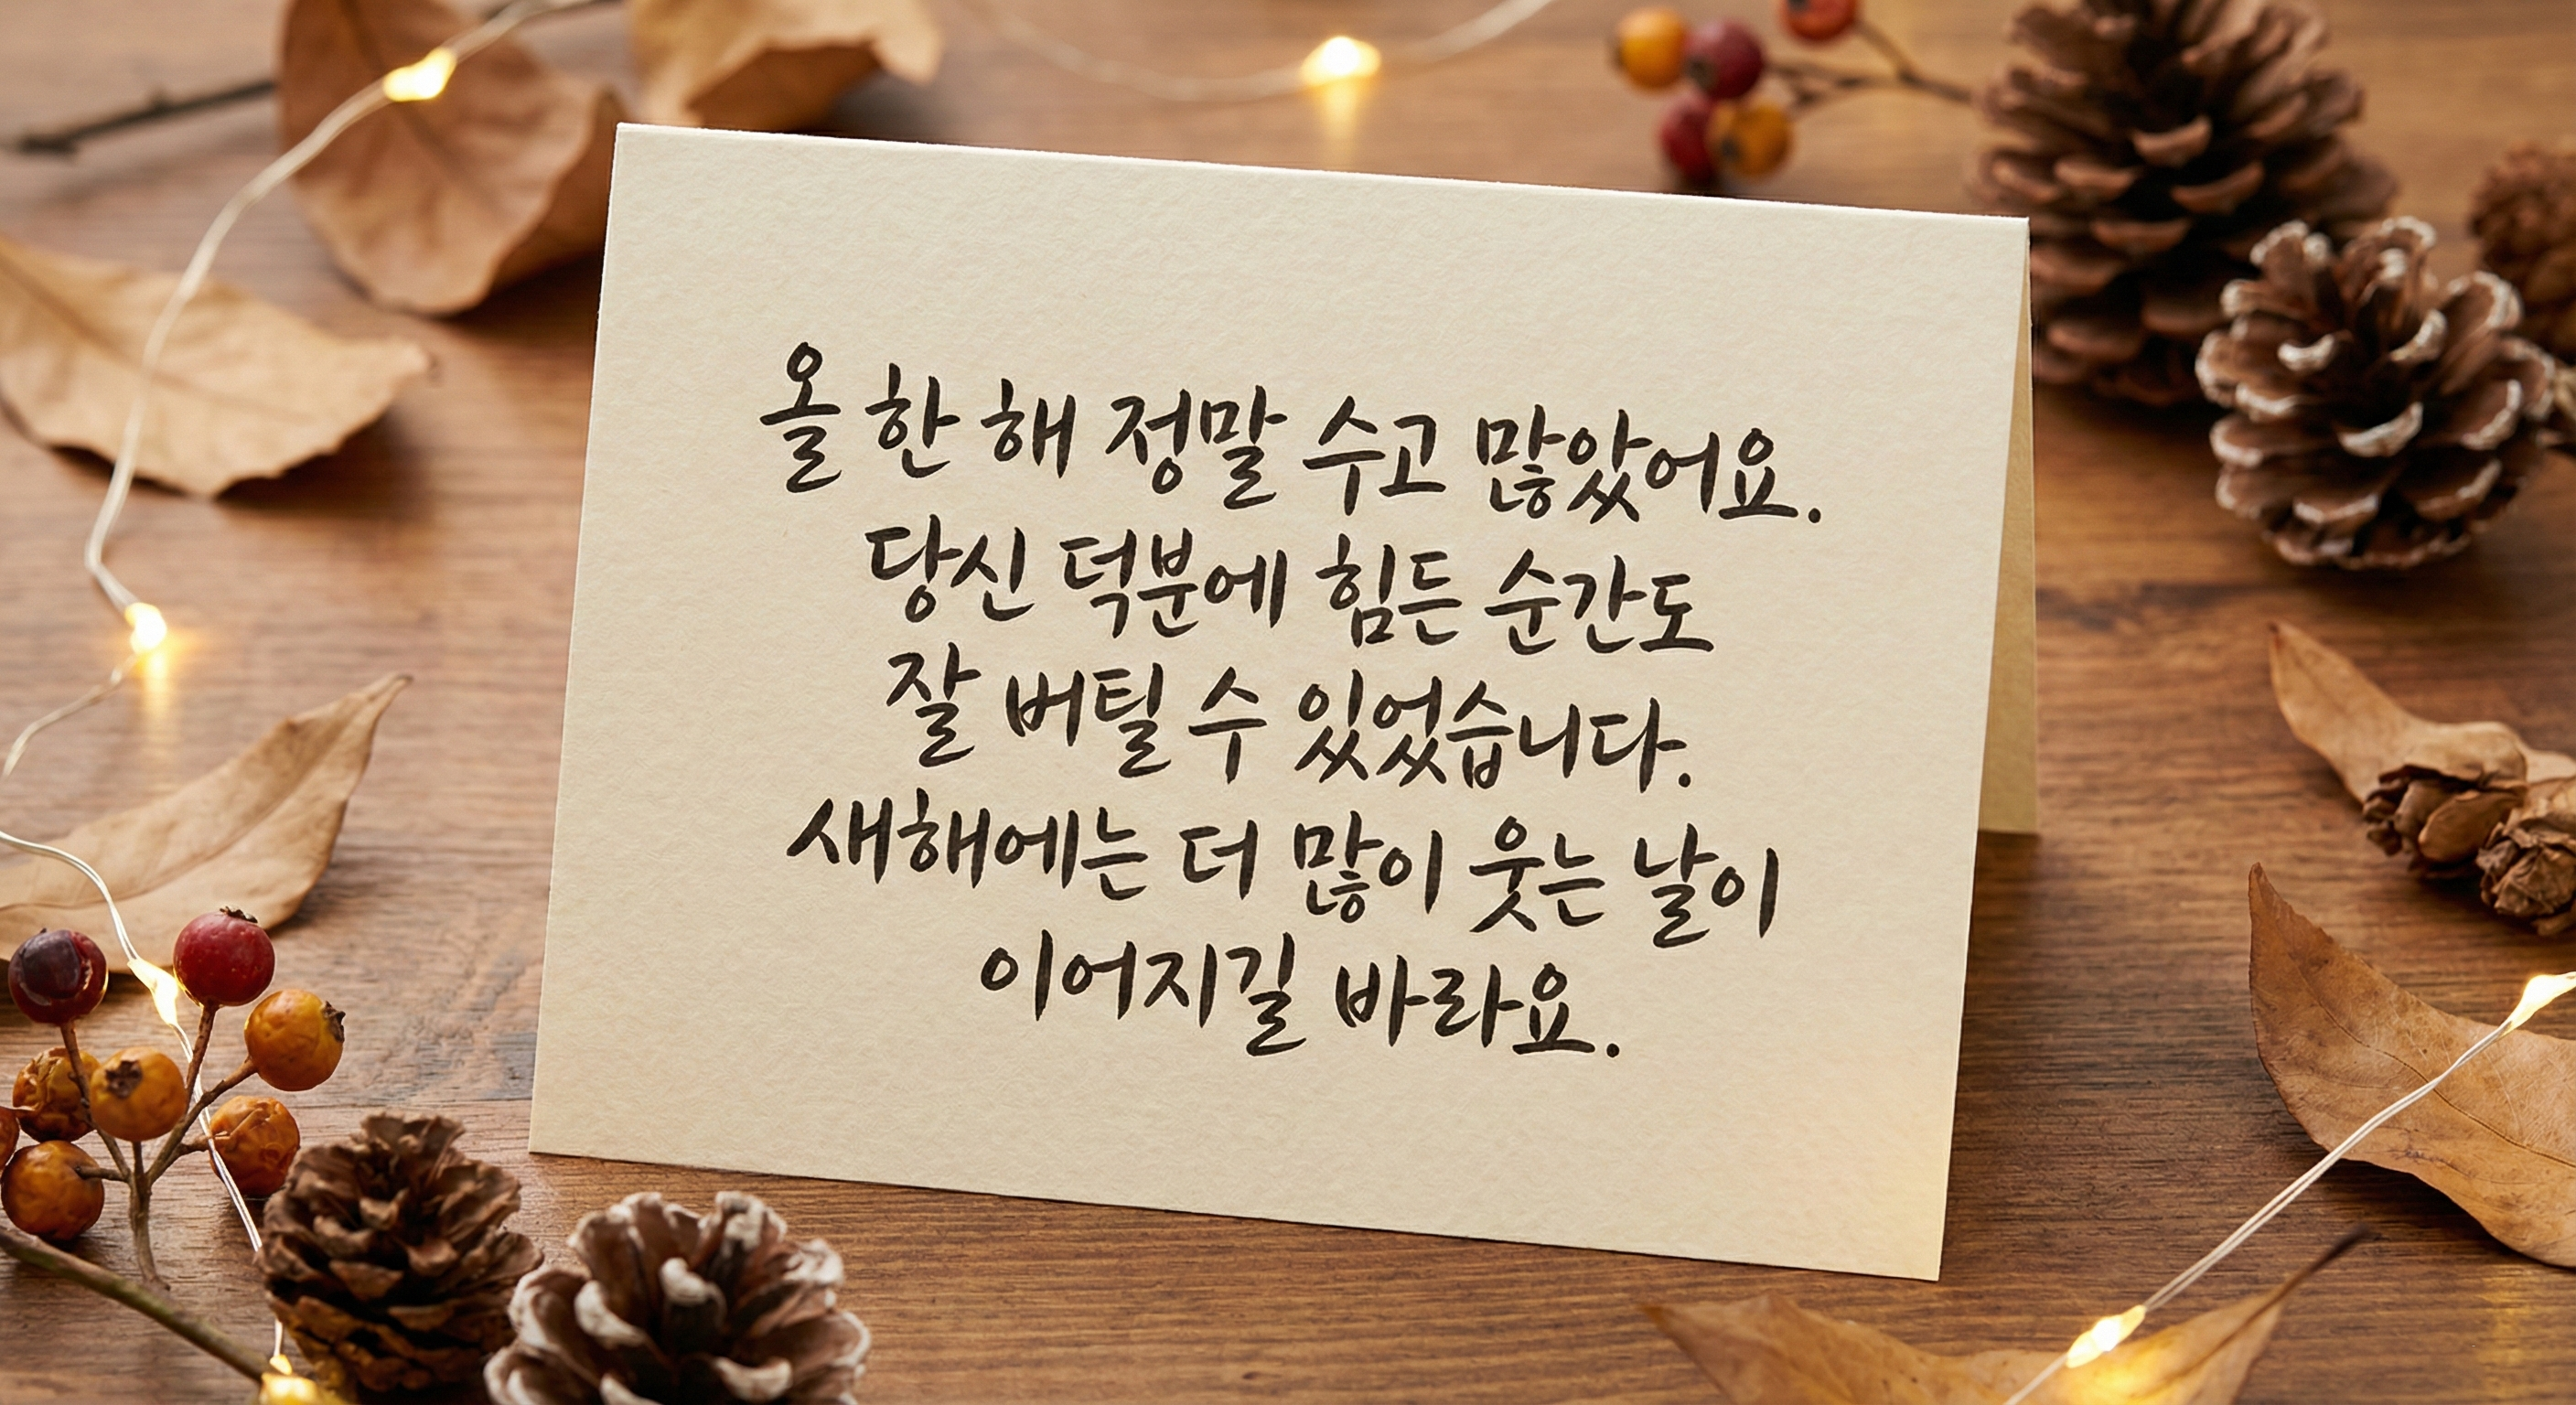 올 한 해 정말 수고 많았어요.
당신 덕분에 힘든 순간도
잘 버틸 수 있었습니다.
새해에는 더 많이 웃는 날이
이어지길 바라요.